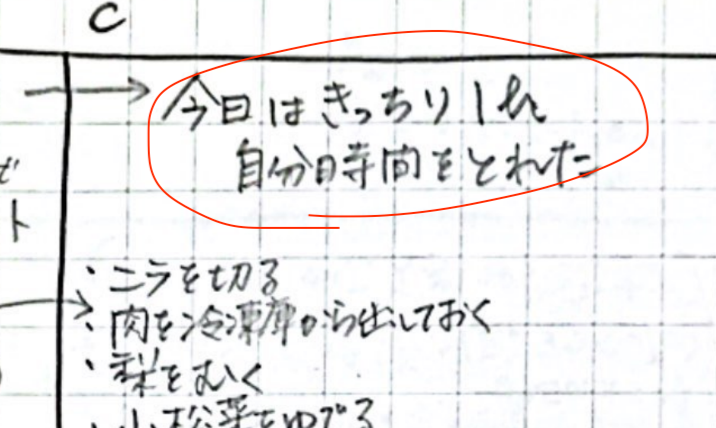 C
今日はきっちり1h
自分時間をとれた
ト
・ニラを切る
・肉を冷凍庫から出しておく
・梨をむく
・小松菜をゆでる